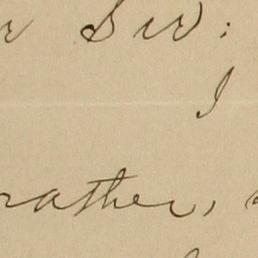 r Sir:
I
rather,